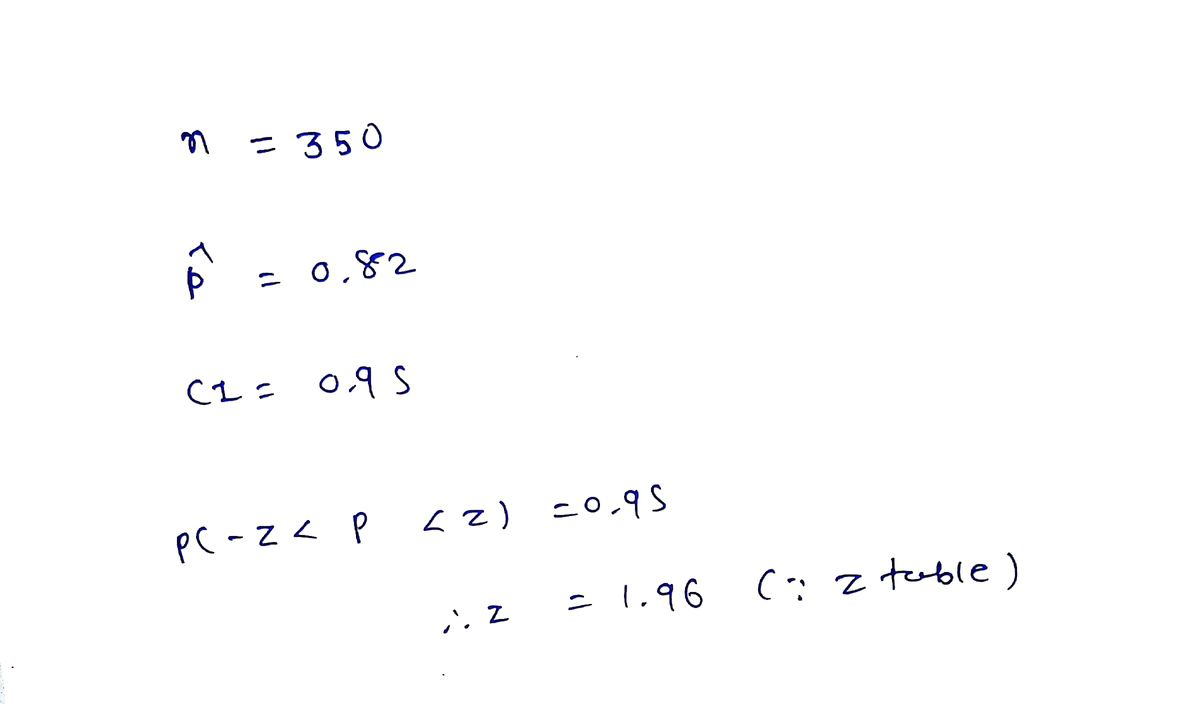 n = 350
p̂ = 0.82
CI = 0.95
P(-z < p < z) = 0.95
∴ z = 1.96 (∵ z table)